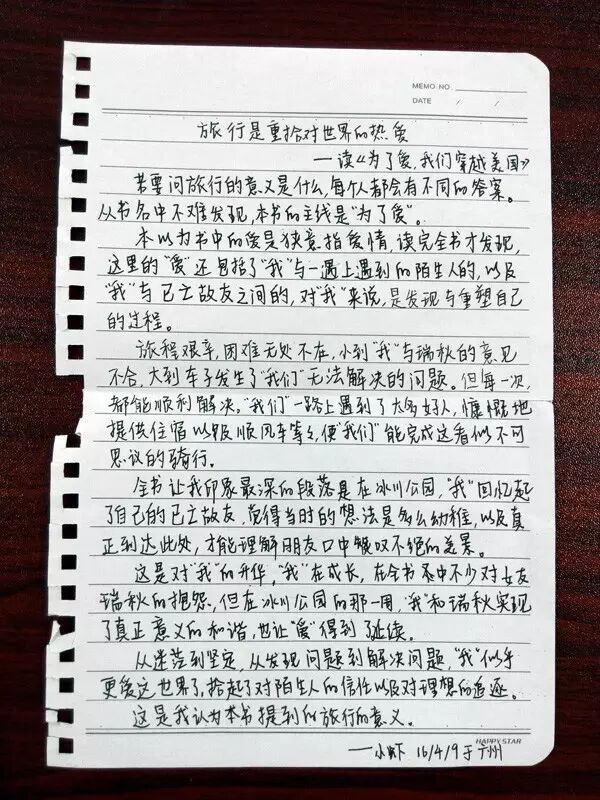 MEMO NO.
DATE / /
旅行是重拾对世界的热爱
——读《为了爱,我们穿越美国》
若要问旅行的意义是什么,每个人都会有不同的答案。
从书名中不难发现,本书的主线是“为了爱”。
本以为书中的爱是狭意指爱情,读完全书才发现,
这里的“爱”还包括了“我”与一遇上遇到的陌生人的,以及
“我”与已亡故友之间的,对“我”来说,是发现与重塑自己
的过程。
旅程艰辛,困难无处不在,小到“我”与瑞秋的意见
不合,大到车子发生了“我们”无法解决的问题。但每一次,
都能顺利解决。“我们”一路上遇到了太多好人,慷慨地
提供住宿以及顺风车等等,使“我们”能完成这看似不可
思议的骑行。
全书让我印象最深的段落是在冰川公园,“我”回忆起
了自己的已亡故友,觉得当时的想法是多么幼稚,以及真
正到达此处,才能理解朋友口中赞叹不绝的美景。
这是对“我”的升华,“我”在成长,在全书中不少对女友
瑞秋的抱怨,但在冰川公园的那一周,“我”和瑞秋实现
了真正意义的和谐,也让“爱”得到了延续。
从迷茫到坚定,从发现问题到解决问题,“我”似乎
更爱这世界了,拾起了对陌生人的信任以及对理想的追逐。
这是我认为本书提到的旅行的意义。
HAPPY STAR
——小虾 16/4/9于广州